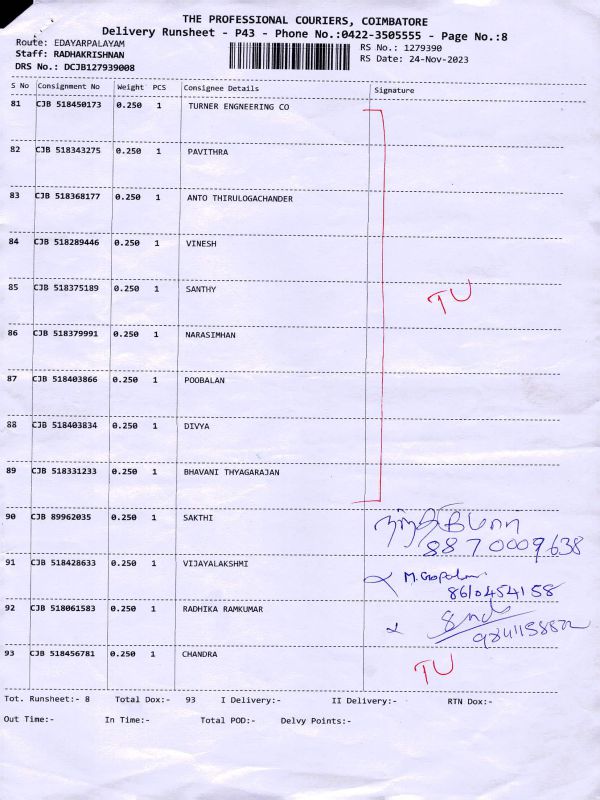 THE PROFESSIONAL COURIERS, COIMBATORE
Delivery Runsheet - P43 - Phone No.:0422-3505555 - Page No.:8
Route: EDAYARPALAYAM
Staff: RADHAKRISHNAN
DRS No.: DCJB127939008
RS No.: 1279390
RS Date: 24-Nov-2023
S No Consignment No Weight PCS Consignee Details Signature
81 CJB 518450173 0.250 1 TURNER ENGNEERING CO
82 CJB 518343275 0.250 1 PAVITHRA
83 CJB 518368177 0.250 1 ANTO THIRULOGACHANDER
84 CJB 518289446 0.250 1 VINESH
85 CJB 518375189 0.250 1 SANTHY
TU
86 CJB 518379991 0.250 1 NARASIMHAN
87 CJB 518403866 0.250 1 POOBALAN
88 CJB 518403834 0.250 1 DIVYA
89 CJB 518331233 0.250 1 BHAVANI THYAGARAJAN
90 CJB 89962035 0.250 1 SAKTHI
8870009638
91 CJB 518428633 0.250 1 VIJAYALAKSHMI M. Gopalan
8610454158
92 CJB 518061583 0.250 1 RADHIKA RAMKUMAR
93 CJB 518456781 0.250 1 CHANDRA TU
Tot. Runsheet:- 8 Total Dox:- 93 I Delivery:- II Delivery:- RTN Dox:-
Out Time:- In Time:- Total POD:- Delvy Points:-